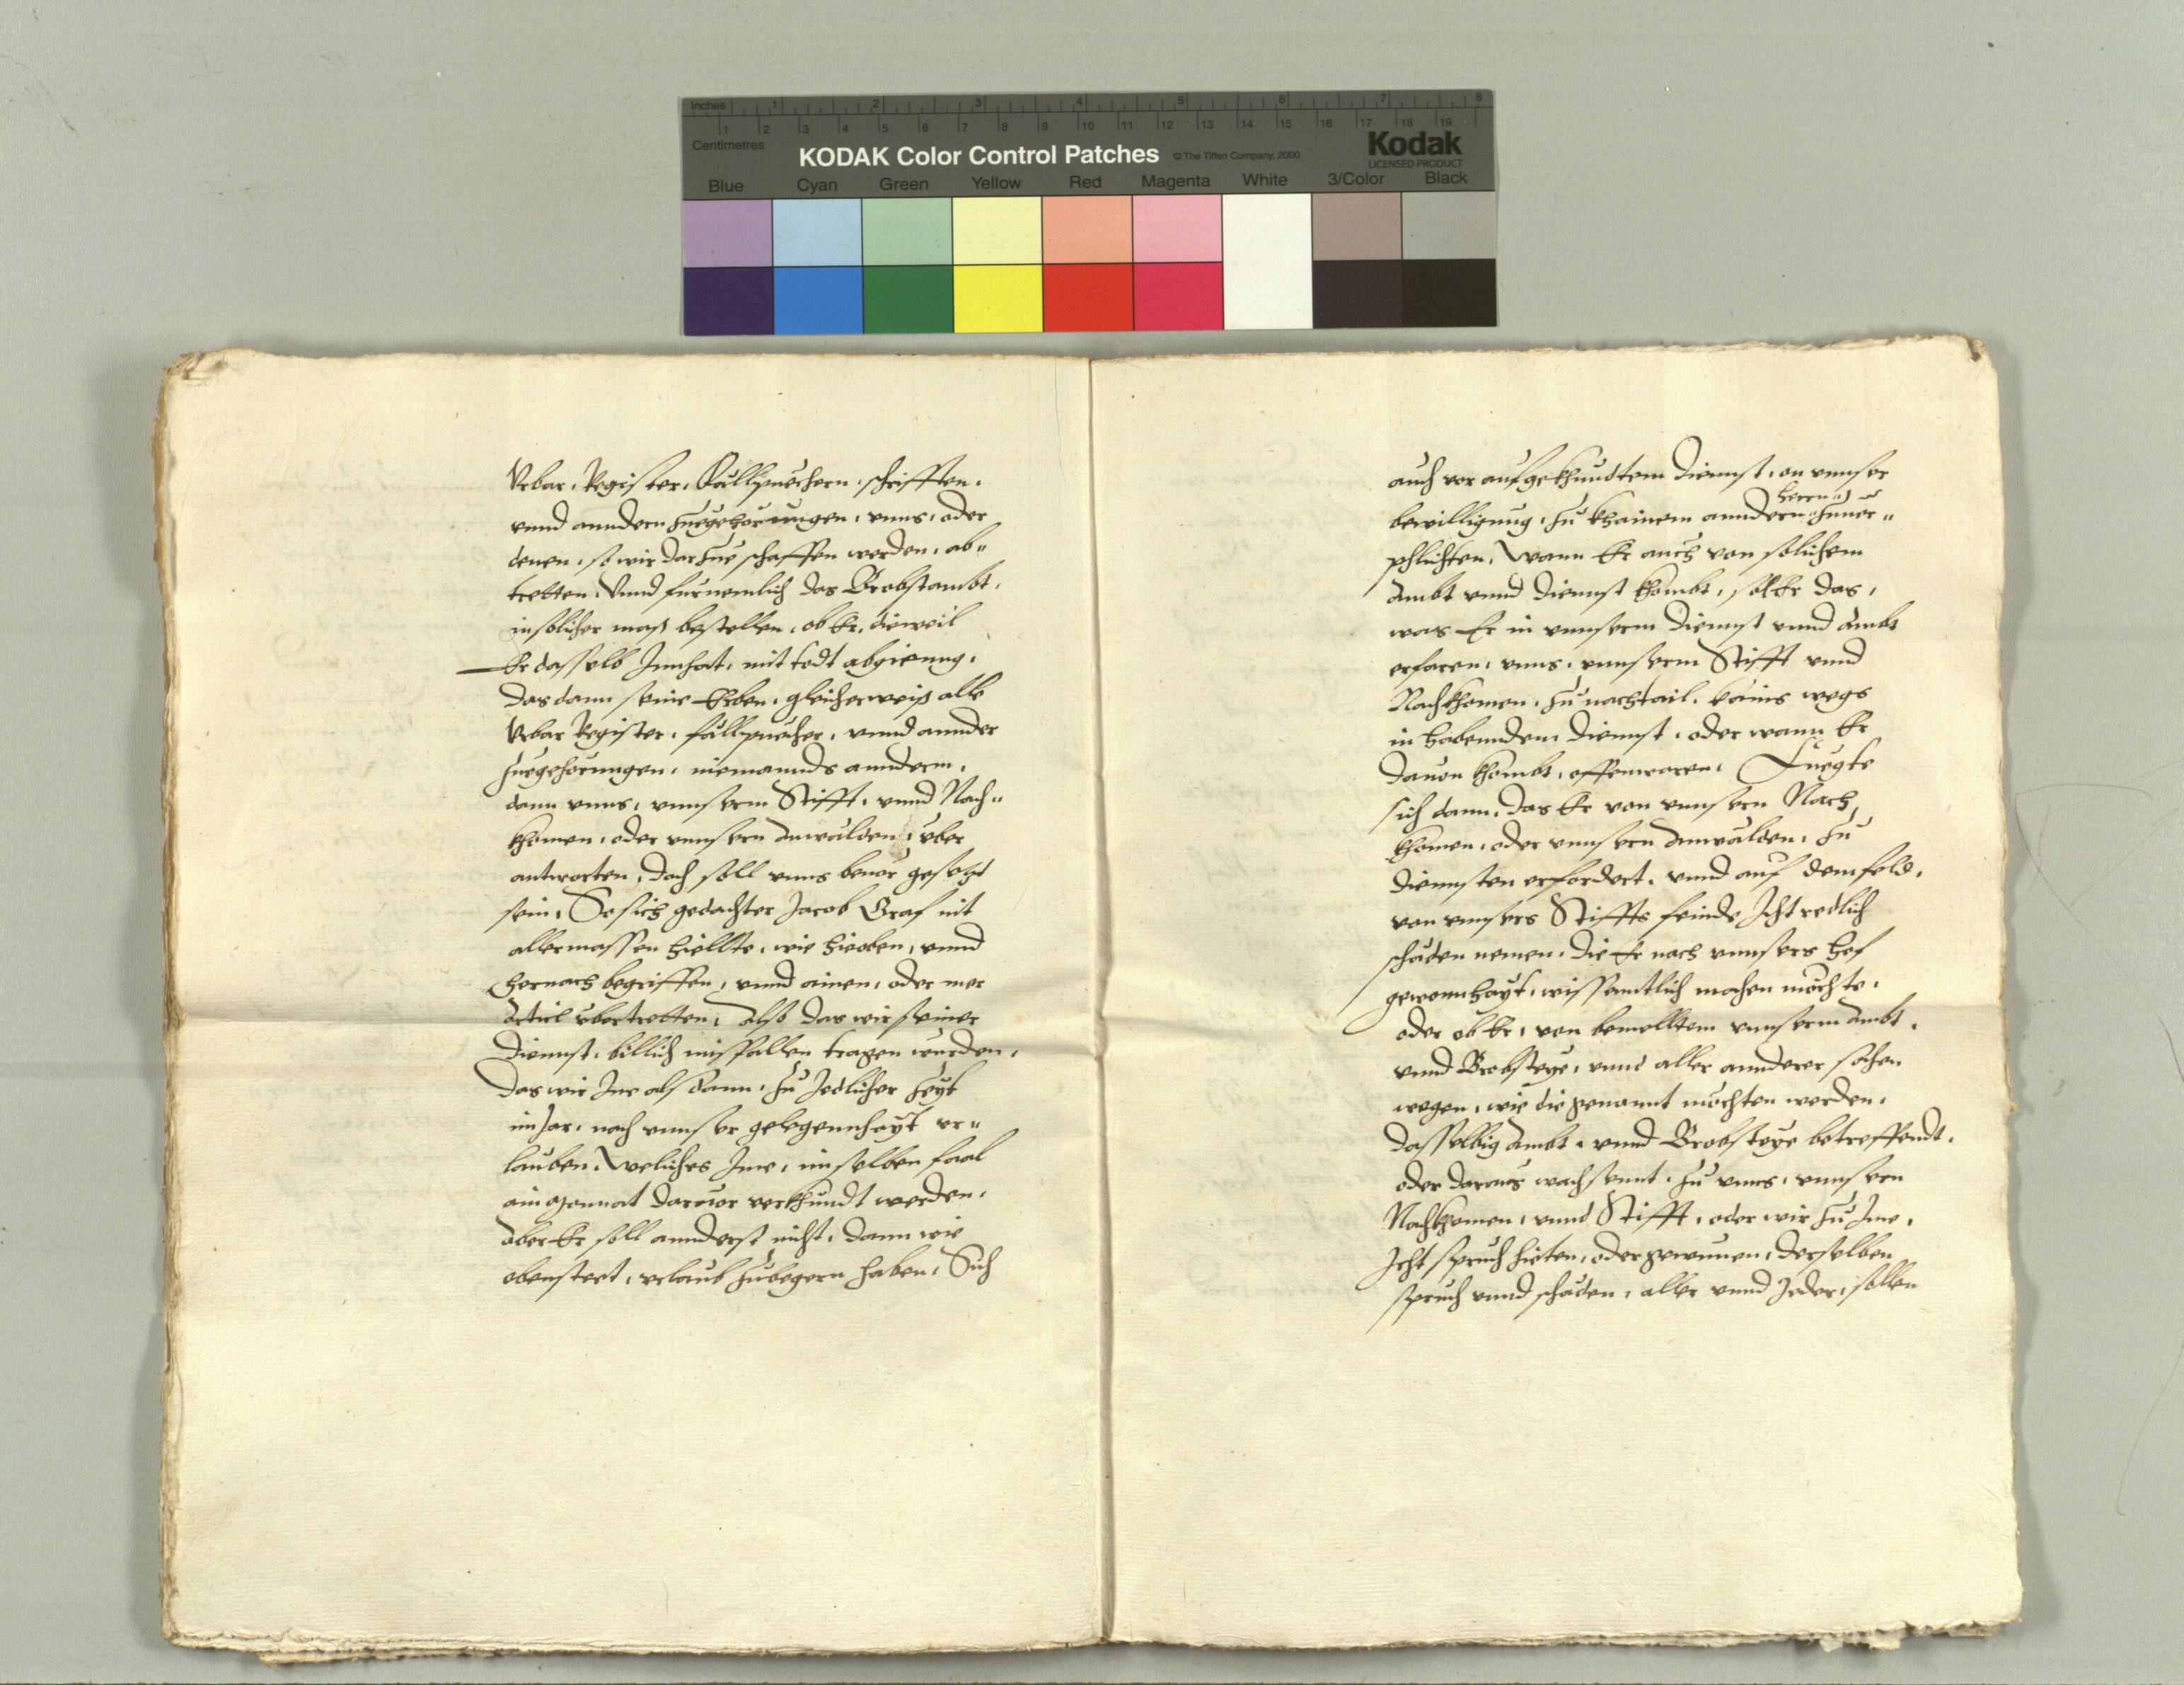 Inches 1 2 3 4 5 6 7 8
1 2 3 4 5 6 7 8 9 10 11 12 13 14 15 16 17 18 19
Centimetres
KODAK Color Control Patches © The Tiffen Company, 2000 Kodak
LICENSED PRODUCT
Blue Cyan Green Yellow Red Magenta White 3/Color Black
Vrbar, Register, Fällpuechern, schrifften,
vnnd anndern zuegehorungen, vnns, oder
denen, so wir darzue schaffen werden, ab„
tretten. Vnnd fürnemlich das Brobstambt,
in solicher mass bestellen, ob Er, dieweil
Er dasselb Innhat, mit todt abgienng,
das dann seine Erben, gleicherweiß alle
Vrbar Register, fällpuecher, vnnd annder
zuegehorungen, niemannds annderm,
dann vnns, vnnserm Stifft, vnnd Nach„
khomen, oder vnnsern Anwälden, vber
antworten, doch soll vnns beuor gesetzt
sein, So sich gedachter Jacob Graf nit
allermassen hiellte, wie hieoben, vnnd
hernach begriffen, vnnd ainen, oder mer
Articl vbertretten, also das wir seiner
Diennst, billich missfallen tragen wurden,
Das wir Ine alsdann, zu Jedlicher Zeyt
im Jar, nach vnnser gelegennhayt vr„
lauben, weliches Ime, im selben faal
ain Monnat daruor verkhundt werden,
Aber Er soll annderst nicht, dann wie
obensteet, vrlaub zubegern haben, Sich
auch vor aufgekhundtem Diennst, on vnnser
herrn
bewilligung, zu khainem anndern zuuer„
phlichten, Wann Er auch von solichem
Ambt vnnd Diennst khombt, sol Er das,
was Er in vnnserm Diennst vnnd Ambt
erfaren, vnns, vnnserm Stifft vnnd
Nachkhomen, zu nachtail, kains wegs
in habenndem Diennst, oder wann Er
dauon khombt, offenwaren, Fuegte
sich dann, das Er von vnnsern Nach
khomen, oder vnnsern Anwälden, zu
Diennsten erfordert, vnnd auf dem feld,
von vnnsers Stiffts feinde Icht redlich
schäden nemen, die Er nach vnnsers Hof
gewonnhayt, wissenntlich machen möchte,
oder ob Er, von bemelltem vnnserm Ambt,
vnnd Brobsteye, vnnd aller annderer sachen
wegen, wie die genannt möchten werden,
dasselbig Ambt, vnnd Brobsteye betreffendt,
oder daraus wachsennt, zu vnns, vnnsern
Nachkhomen, vnnd Stifft, oder wir zu Ime,
Icht spruch hieten, oder gewunnen, derselben
spruch vnnd schäden, aller vnnd Jeder, sollen